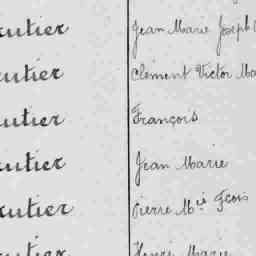 utier Jean Marie Joseph
utier Clément Victor Ma
utier François
utier Jean Marie
utier Pierre Mie Fcois
utier Henri Marie